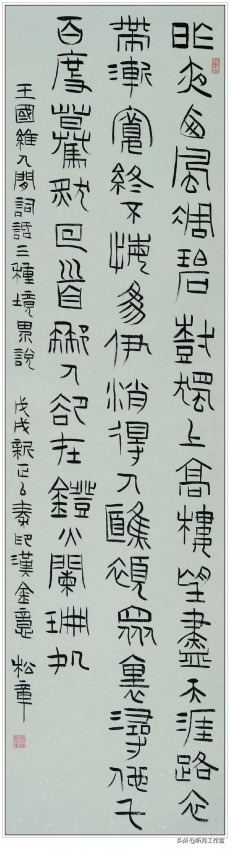 昨夜西風凋碧樹獨上高樓望盡天涯路衣
帶漸寬終不悔為伊消得人憔悴眾裏尋他千
百度驀然回首那人卻在鐙火闌珊処
王國維人間詞話三種境界說 戊戌新正以秦印漢金意 松章